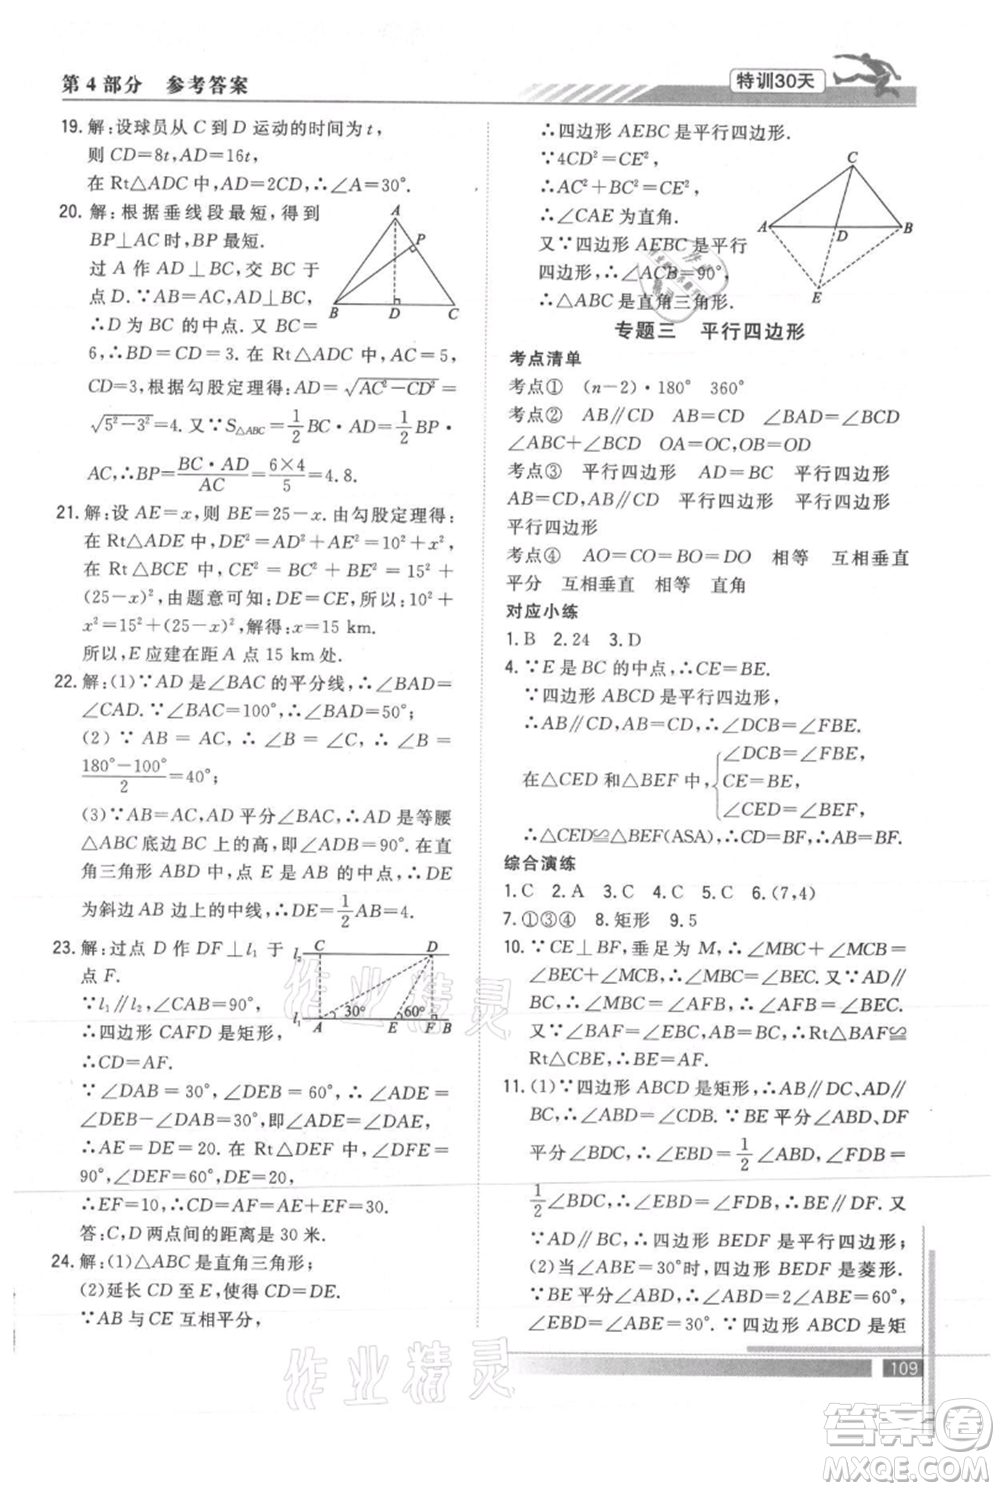 第4部分 参考答案
特训30天
19. 解:设球员从 C 到 D 运动的时间为 t,
则 CD=8t,AD=16t,
在 Rt△ADC 中,AD=2CD,∴∠A=30°.
20. 解:根据垂线段最短,得到
BP⊥AC时,BP 最短.
过 A 作 AD⊥BC,交 BC 于
点 D.∵AB=AC,AD⊥BC,
∴D 为 BC 的中点. 又 BC=
6,∴BD=CD=3. 在 Rt△ADC 中,AC=5,
CD=3,根据勾股定理得:AD=√(AC²-CD²)=
√(5²-3²)=4. 又∵S△ABC=1/2 BC·AD=1/2 BP·
AC,∴BP=BC·AD/AC=6×4/5=4.8.
A
P
B
D
C
21. 解:设 AE=x,则 BE=25-x. 由勾股定理得:
在 Rt△ADE 中,DE²=AD²+AE²=10²+x²,
在 Rt△BCE 中,CE²=BC²+BE²=15²+
(25-x)²,由题意可知:DE=CE,所以:10²+
x²=15²+(25-x)²,解得:x=15 km.
所以,E 应建在距 A 点 15 km处.
22. 解:(1)∵AD 是∠BAC 的平分线,∴∠BAD=
∠CAD.∵∠BAC=100°,∴∠BAD=50°;
(2)∵AB=AC,∴∠B=∠C,∴∠B=
180°-100°/2=40°;
(3)∵AB=AC,AD 平分∠BAC,∴AD 是等腰
△ABC 底边 BC 上的高,即∠ADB=90°. 在直
角三角形 ABD 中,点 E 是 AB 的中点,∴DE
为斜边 AB 边上的中线,∴DE=1/2 AB=4.
23. 解:过点 D 作 DF⊥l₁ 于
点 F.
∵l₁∥l₂,∠CAB=90°,
∴四边形 CAFD 是矩形,
∴CD=AF.
l₂
C
D
l₁
A
30°
E
60°
F
B
∵∠DAB=30°,∠DEB=60°,∴∠ADE=
∠DEB-∠DAB=30°,即∠ADE=∠DAE,
∴AE=DE=20. 在 Rt△DEF 中,∠DFE=
90°,∠DEF=60°,DE=20,
∴EF=10,∴CD=AF=AE+EF=30.
答:C,D 两点间的距离是 30 米.
24. 解:(1)△ABC是直角三角形;
(2)延长 CD 至 E,使得 CD=DE.
∵AB与 CE 互相平分,
∴四边形 AEBC 是平行四边形.
∵4CD²=CE²,
∴AC²+BC²=CE²,
∴∠CAE 为直角.
又∵四边形 AEBC 是平行
四边形,∴∠ACB=90°,
∴△ABC 是直角三角形.
C
A
D
B
E
专题三 平行四边形
考点清单
考点① (n-2)·180° 360°
考点② AB∥CD AB=CD ∠BAD=∠BCD
∠ABC=∠ADC OA=OC,OB=OD
考点③ 平行四边形 AD=BC 平行四边形
AB=CD,AB∥CD 平行四边形 平行四边形
平行四边形
考点④ AO=CO=BO=DO 相等 互相垂直
平分 互相垂直 相等 直角
对应小练
1. B 2. 24 3. D
4. ∵E 是 BC 的中点,∴CE=BE.
∵四边形 ABCD 是平行四边形,
∴AB∥CD,AB=CD,∴∠DCB=∠FBE.
在△CED 和△BEF 中,{∠DCB=∠FBE,
CE=BE,
∠CED=∠BEF,
∴△CED≌△BEF(ASA),∴CD=BF,∴AB=BF.
综合演练
1. C 2. A 3. C 4. C 5. C 6. (7,4)
7. ①③④ 8. 矩形 9. 5
10. ∵CE⊥BF,垂足为 M,∴∠MBC+∠MCB=
∠BEC+∠MBE=90°,∴∠MBE=∠MCB.
∵AD∥BC,∴∠MBC=∠AFB,∴∠AFB=∠BEC.
又∵∠BAF=∠EBC,AB=BC,∴Rt△BAF≌
Rt△CBE,∴AF=BE.
11. (1)∵四边形 ABCD 是矩形,∴AB∥DC、AD∥
BC,∴∠ABD=∠CDB.∵BE 平分∠ABD,DF
平分∠BDC,∴∠EBD=1/2∠ABD,∠FDB=
1/2∠BDC,∴∠EBD=∠FDB,∴BE∥DF. 又
∵AD∥BC,∴四边形 BEDF 是平行四边形;
(2)当∠ABE=30°时,四边形 BEDF 是菱形.
∵BE 平分∠ABD,∴∠ABD=2∠ABE=60°,
∠EBD=∠ABE=30°.∵四边形 ABCD 是矩
109
作业精灵
作业精灵
答案圈
MXQE.COM